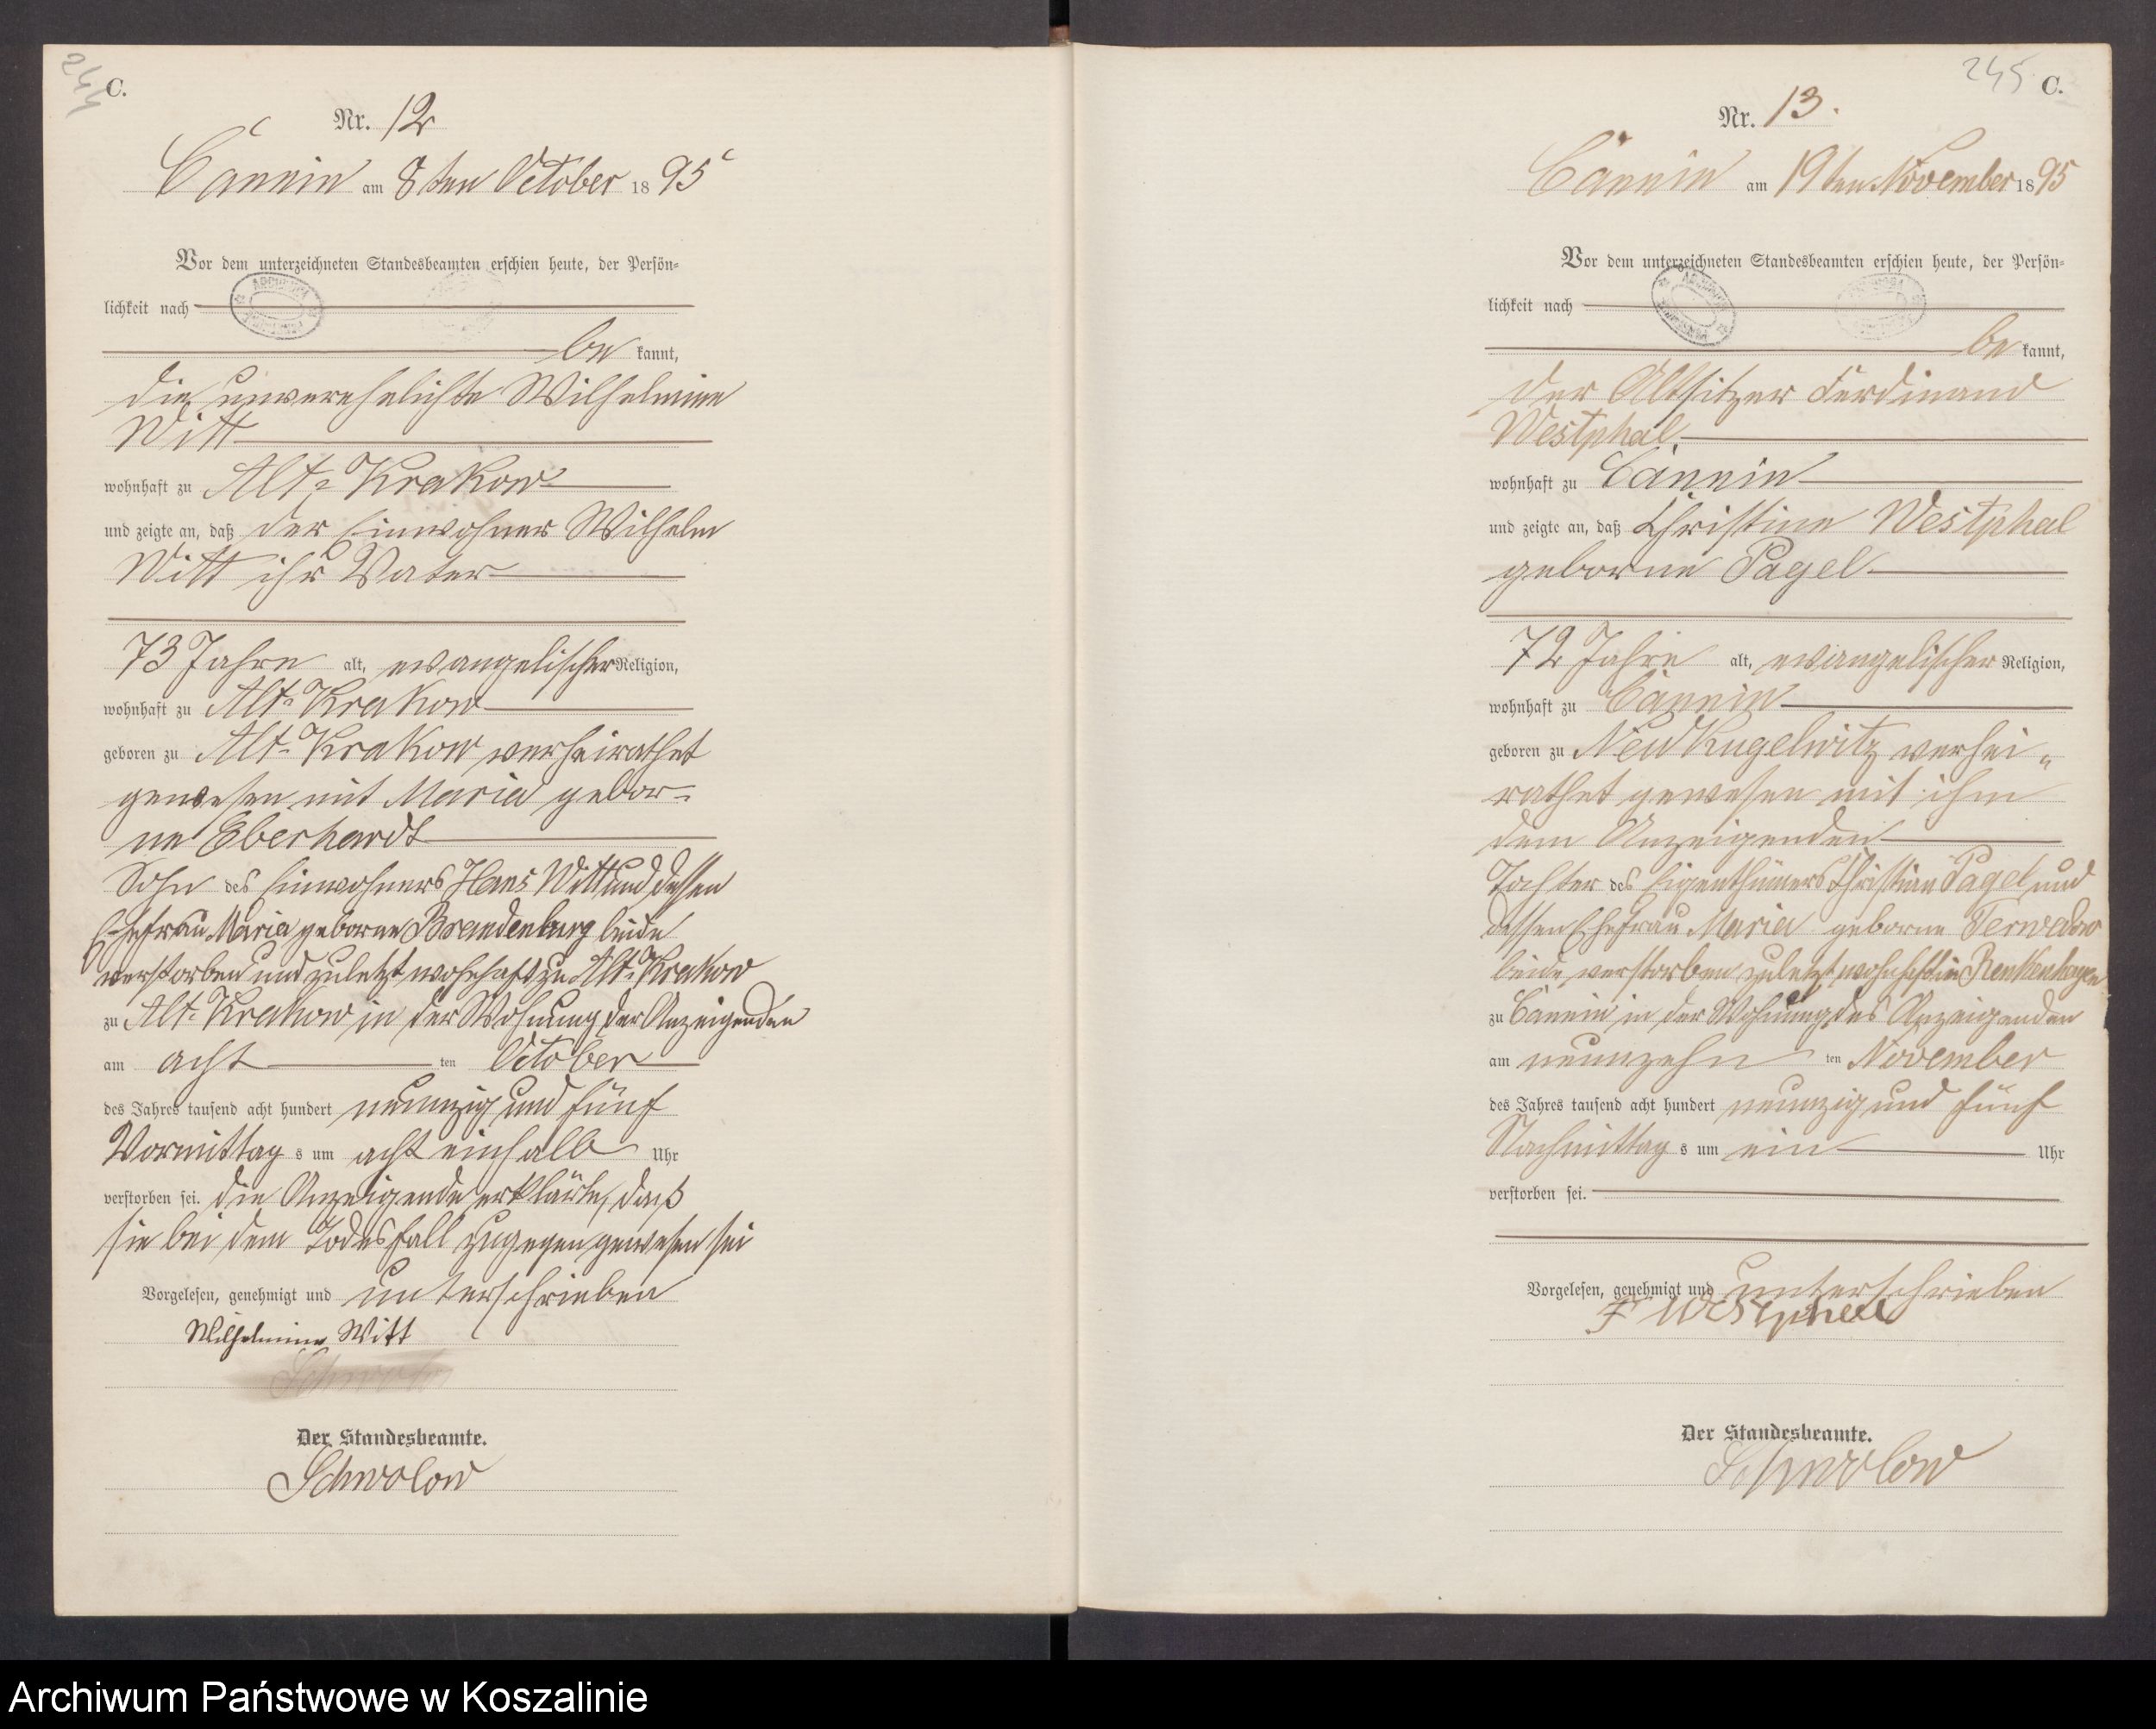 244
C.
Nr. 12
Cannin am 8ten October 1895
Vor dem unterzeichneten Standesbeamten erschien heute, der Persön-
lichkeit nach
be kannt,
die unverehelichte Wilhelmine
Witt
wohnhaft zu Alt-Krakow
und zeigte an, daß der Einwohner Wilhelm
Witt ihr Vater
73 Jahre alt, evangelischer Religion,
wohnhaft zu Alt-Krakow
geboren zu Alt-Krakow verheirathet
gewesen mit Maria gebor-
ne Eberhardt
Sohn des Einwohners Hans Witt und dessen
Ehefrau Maria geborne Brandenburg beide
verstorben und zuletzt wohnhaft zu Alt-Krakow
zu Alt-Krakow in der Wohnung der Anzeigenden
am acht ten October
des Jahres tausend acht hundert neunzig und fünf
Vormittag s um acht einhalb Uhr
verstorben sei. die Anzeigende erklärte, daß
sie bei dem Todesfall zugegen gewesen sei
Vorgelesen, genehmigt und unterschrieben
Wilhelmine Witt
Schwolow
Der Standesbeamte.
Schwolow
245
C.
Nr. 13.
Cannin am 19ten November 1895
Vor dem unterzeichneten Standesbeamten erschien heute, der Persön-
lichkeit nach
be kannt,
der Altsitzer Ferdinand
Westphal,
wohnhaft zu Cannin
und zeigte an, daß Christine Westphal
geborne Pagel
72 Jahre alt, evangelischer Religion,
wohnhaft zu Cannin
geboren zu Neu Kugelwitz verhei-
rathet gewesen mit ihm
dem Anzeigenden
Tochter des Eigenthümers Christian Pagel und
dessen Ehefrau Maria geborne
beide verstorben zuletzt wohnhaft in Renkenhagen
zu Cannin in der Wohnung des Anzeigenden
am neunzehn ten November
des Jahres tausend acht hundert neunzig und fünf
Nachmittag s um ein Uhr
verstorben sei.
Vorgelesen, genehmigt und unterschrieben
F Westphal
Der Standesbeamte.
Schwolow
Archiwum Państwowe w Koszalinie